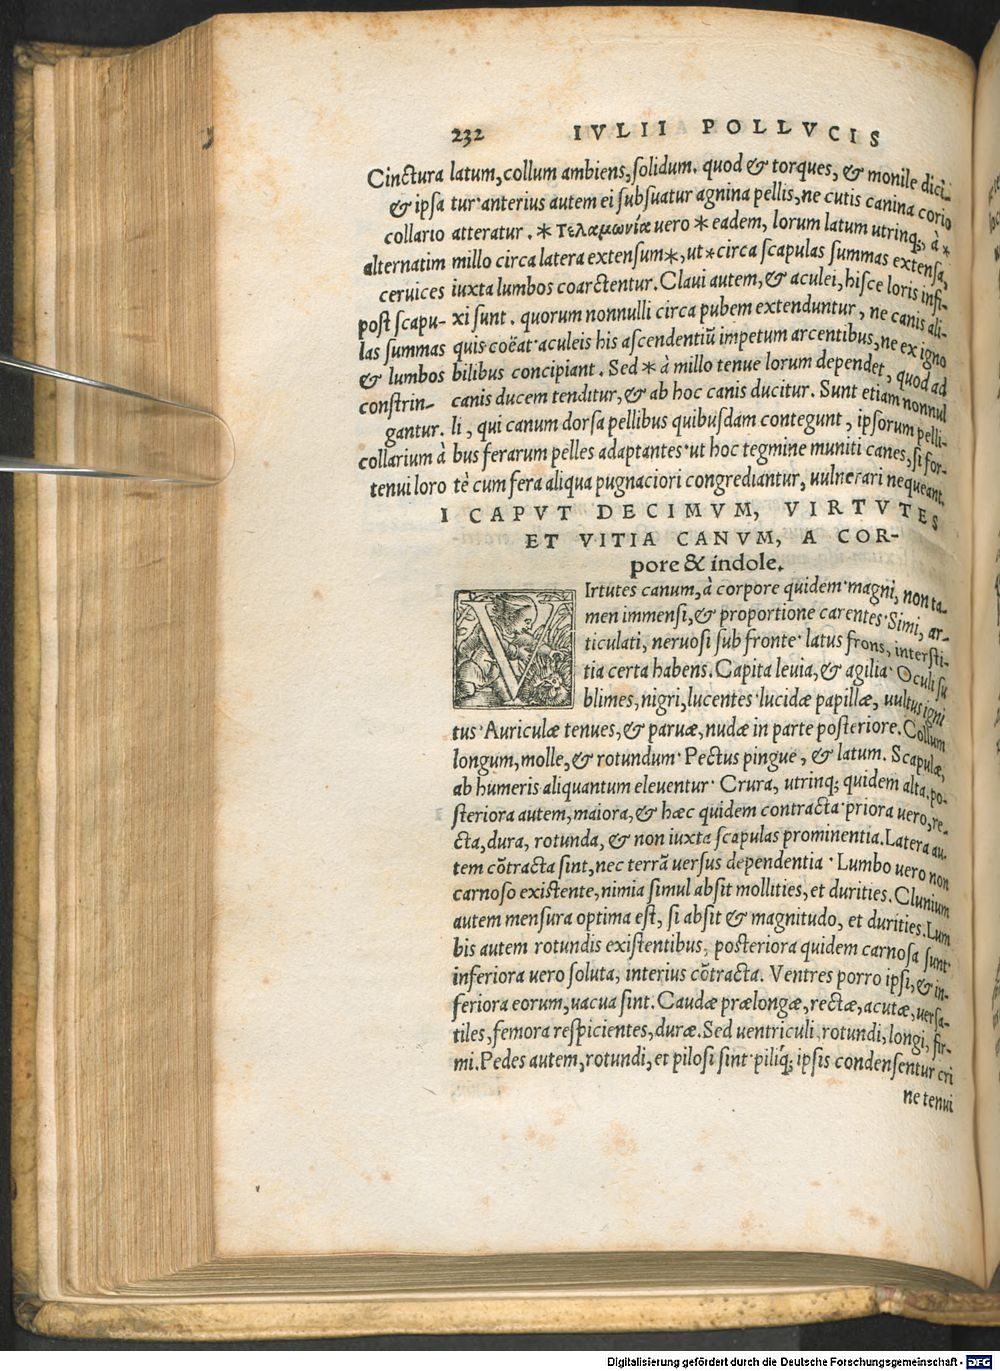 232 IVLII POLLVCIS
Cinctura latum, collum ambiens, solidum. quod & torques, & monile dici-
& ipsa tur· anterius autem ei subsuatur agnina pellis, ne cutis canina corio
collario atteratur. * Τελαμωνίαι uero * eadem, lorum latum utrinq;, à *
alternatim millo circa latera extensum *, ut * circa scapulas summas extensa,
ceruices iuxta lumbos coarctentur. Claui autem, & aculei, hisce loris infi-
post scapu- xi sunt. quorum nonnulli circa pubem extenduntur, ne canis ali-
las summas quis coëat· aculeis his ascendentiũ impetum arcentibus, ne ex igno
& lumbos bilibus concipiant. Sed * à millo tenue lorum dependet, quod ad
constrin- canis ducem tenditur, & ab hoc canis ducitur. Sunt etiam nonnul
gantur. li, qui canum dorsa pellibus quibusdam contegunt, ipsorum pelli-
collarium à bus ferarum pelles adaptantes· ut hoc tegmine muniti canes, si for-
tenui loro tè cum fera aliqua pugnaciori congrediantur, uulnerari nequeant.
I CAPVT DECIMVM, VIRTVTES
ET VITIA CANVM, A COR-
pore & indole.
VIrtutes canum, à corpore quidem· magni, non ta-
men immensi, & proportione carentes· Simi, ar-
ticulati, neruosi sub fronte· latus frons, intersti-
tia certa habens. Capita leuia, & agilia· Oculi su
blimes, nigri, lucentes· lucidæ papillæ, uultus igni
tus· Auriculæ tenues, & paruæ, nudæ in parte posteriore. Collum
longum, molle, & rotundum· Pectus pingue, & latum. Scapulæ,
ab humeris aliquantum eleuentur· Crura, utrinq; quidem alta. po-
steriora autem, maiora, & hæc quidem contracta· priora uero, re-
cta, dura, rotunda, & non iuxta scapulas prominentia. Latera au-
tem cõtracta sint, nec terrã uersus dependentia· Lumbo uero non
carnoso existente, nimia simul absit mollities, et durities. Clunium
autem mensura optima est, si absit & magnitudo, et durities. Lum
bis autem rotundis existentibus, posteriora quidem carnosa sunt·
inferiora uero soluta, interius cõtracta. Ventres porro ipsi, & in-
feriora eorum, uacua sint. Caudæ prælongæ, rectæ, acutæ, uersa-
tiles, femora respicientes, duræ. Sed uentriculi rotundi, longi, fir-
mi. Pedes autem, rotundi, et pilosi sint· piliq́; ipsis condensentur cri
ne tenui
Digitalisierung gefördert durch die Deutsche Forschungsgemeinschaft - DFG